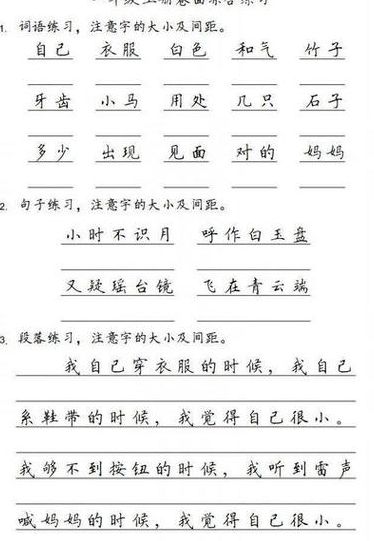 1. 词语练习，注意字的大小及间距。
自己 衣服 白色 和气 竹子
牙齿 小马 用处 几只 石子
多少 出现 见面 对的 妈妈
2. 句子练习，注意字的大小及间距。
小时不识月 呼作白玉盘
又疑瑶台镜 飞在青云端
3. 段落练习，注意字的大小及间距。
我自己穿衣服的时候，我自己
系鞋带的时候，我觉得自己很小。
我够不到按钮的时候，我听到雷声
喊妈妈的时候，我觉得自己很小。